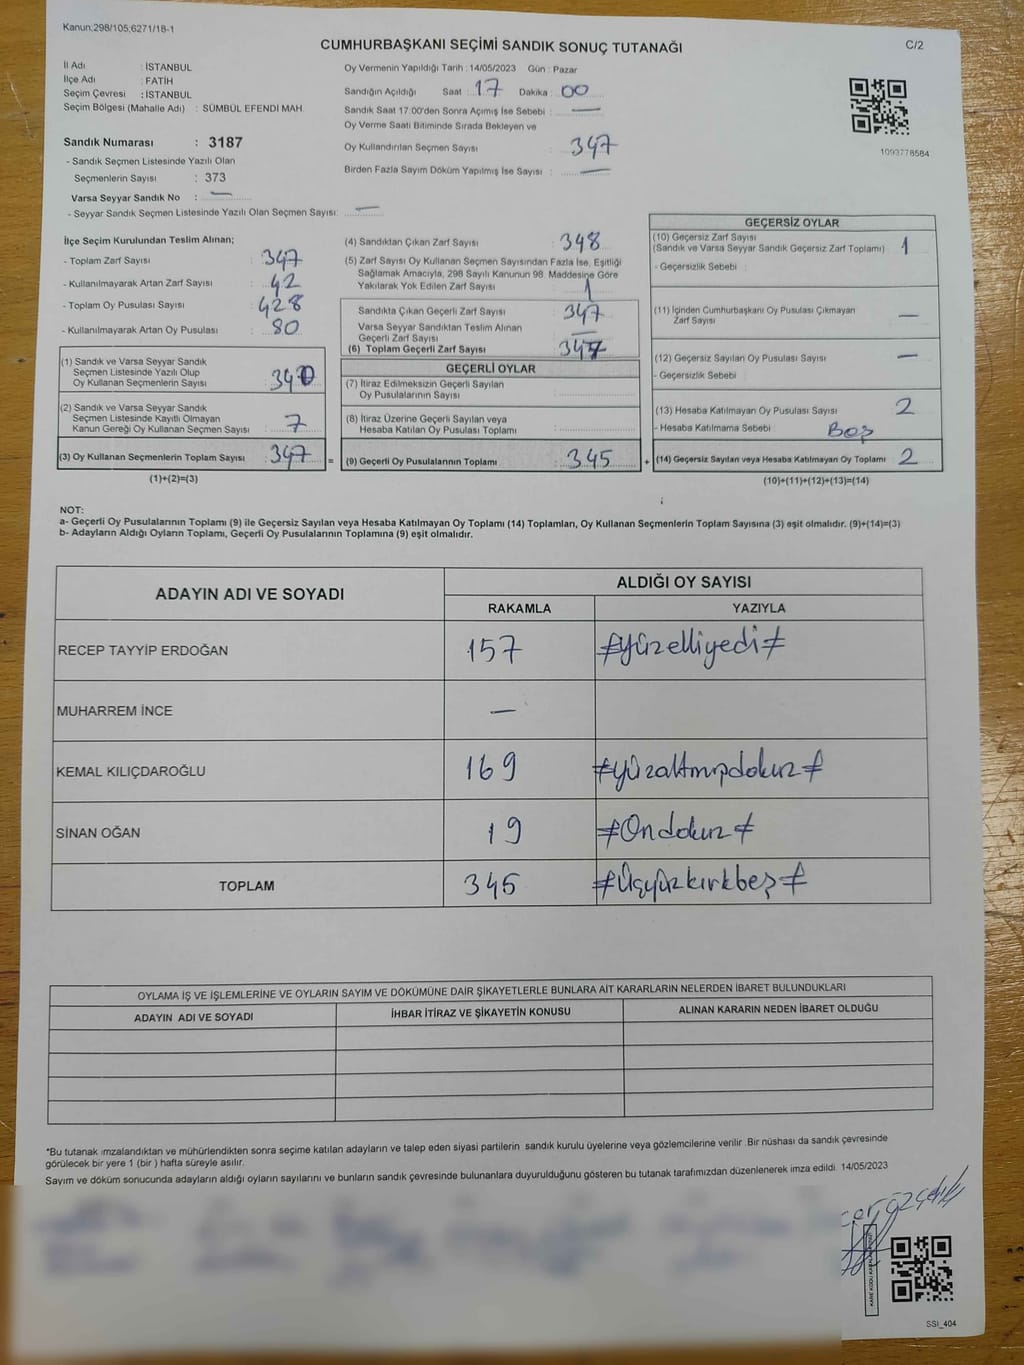 Kanun:298/105;6271/18-1
CUMHURBAŞKANI SEÇİMİ SANDIK SONUÇ TUTANAĞI
C/2
İl Adı : İSTANBUL
İlçe Adı : FATİH
Seçim Çevresi : İSTANBUL
Seçim Bölgesi (Mahalle Adı) : SÜMBÜL EFENDİ MAH.
Sandık Numarası : 3187
- Sandık Seçmen Listesinde Yazılı Olan
Seçmenlerin Sayısı : 373
Varsa Seyyar Sandık No : —
- Seyyar Sandık Seçmen Listesinde Yazılı Olan Seçmen Sayısı: —
Oy Vermenin Yapıldığı Tarih : 14/05/2023 Gün : Pazar
Sandığın Açıldığı Saat : 17 Dakika : 00
Sandık Saat 17:00'den Sonra Açımış İse Sebebi : —
Oy Verme Saati Bitiminde Sırada Bekleyen ve
Oy Kullandırılan Seçmen Sayısı : 347
Birden Fazla Sayım Döküm Yapılmış İse Sayısı : —
1093778584
İlçe Seçim Kurulundan Teslim Alınan;
- Toplam Zarf Sayısı : 347
- Kullanılmayarak Artan Zarf Sayısı : 42
- Toplam Oy Pusulası Sayısı : 428
- Kullanılmayarak Artan Oy Pusulası : 80
(1) Sandık ve Varsa Seyyar Sandık
Seçmen Listesinde Yazılı Olup
Oy Kullanan Seçmenlerin Sayısı : 340
(2) Sandık ve Varsa Seyyar Sandık
Seçmen Listesinde Kayıtlı Olmayan
Kanun Gereği Oy Kullanan Seçmen Sayısı : 7
(3) Oy Kullanan Seçmenlerin Toplam Sayısı : 347
(1)+(2)=(3)
=
(4) Sandıktan Çıkan Zarf Sayısı : 348
(5) Zarf Sayısı Oy Kullanan Seçmen Sayısından Fazla İse, Eşitliği
Sağlamak Amacıyla, 298 Sayılı Kanunun 98. Maddesine Göre
Yakılarak Yok Edilen Zarf Sayısı : 1
Sandıkta Çıkan Geçerli Zarf Sayısı : 347
Varsa Seyyar Sandıktan Teslim Alınan
Geçerli Zarf Sayısı : —
(6) Toplam Geçerli Zarf Sayısı : 347
GEÇERLİ OYLAR
(7) İtiraz Edilmeksizin Geçerli Sayılan
Oy Pusulalarının Sayısı :
(8) İtiraz Üzerine Geçerli Sayılan veya
Hesaba Katılan Oy Pusulası Toplamı :
(9) Geçerli Oy Pusulalarının Toplamı : 345
+
GEÇERSİZ OYLAR
(10) Geçersiz Zarf Sayısı
(Sandık ve Varsa Seyyar Sandık Geçersiz Zarf Toplamı) : 1
- Geçersizlik Sebebi :
(11) İçinden Cumhurbaşkanı Oy Pusulası Çıkmayan
Zarf Sayısı : —
(12) Geçersiz Sayılan Oy Pusulası Sayısı : —
- Geçersizlik Sebebi :
(13) Hesaba Katılmayan Oy Pusulası Sayısı : 2
- Hesaba Katılmama Sebebi : Boş
(14) Geçersiz Sayılan veya Hesaba Katılmayan Oy Toplamı : 2
(10)+(11)+(12)+(13)=(14)
NOT:
a- Geçerli Oy Pusulalarının Toplamı (9) ile Geçersiz Sayılan veya Hesaba Katılmayan Oy Toplamı (14) Toplamları, Oy Kullanan Seçmenlerin Toplam Sayısına (3) eşit olmalıdır. (9)+(14)=(3)
b- Adayların Aldığı Oyların Toplamı, Geçerli Oy Pusulalarının Toplamına (9) eşit olmalıdır.
ADAYIN ADI VE SOYADI
ALDIĞI OY SAYISI
RAKAMLA YAZIYLA
RECEP TAYYİP ERDOĞAN 157 ≠yüzelliyedi≠
MUHARREM İNCE —
KEMAL KILIÇDAROĞLU 169 ≠yüzaltmışdokuz≠
SİNAN OĞAN 19 ≠Ondokuz≠
TOPLAM 345 ≠Üçyüzkırkbeş≠
OYLAMA İŞ VE İŞLEMLERİNE VE OYLARIN SAYIM VE DÖKÜMÜNE DAİR ŞİKAYETLERLE BUNLARA AİT KARARLARIN NELERDEN İBARET BULUNDUKLARI
ADAYIN ADI VE SOYADI İHBAR İTİRAZ VE ŞİKAYETİN KONUSU ALINAN KARARIN NEDEN İBARET OLDUĞU
*Bu tutanak imzalandıktan ve mühürlendikten sonra seçime katılan adayların ve talep eden siyasi partilerin sandık kurulu üyelerine veya gözlemcilerine verilir. Bir nüshası da sandık çevresinde
görülecek bir yere 1 (bir ) hafta süreyle asılır.
Sayım ve döküm sonucunda adayların aldığı oyların sayılarını ve bunların sandık çevresinde bulunanlara duyurulduğunu gösteren bu tutanak tarafımızdan düzenlenerek imza edildi. 14/05/2023
SSI_404